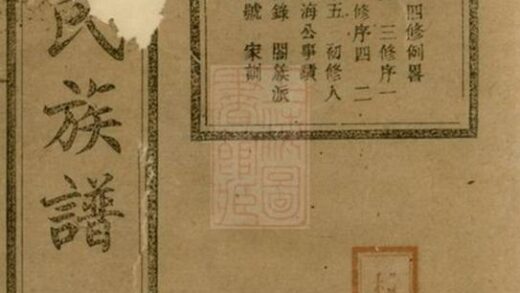 四修例畧
三修序一
修序四 二
五 初修人
海公事蹟
錄 閤族派
號 家訓
氏族譜